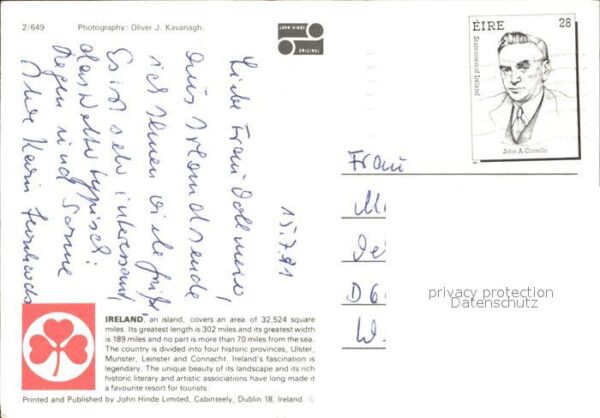 2/649 Photography: Oliver J. Kavanagh.
JOHN HINDE
ORIGINAL
ÉIRE 28
Statesmen of Ireland
John A. Costello
15.7.91
Liebe Frau
aus Irland sende
ich Ihnen viele Grüße,
Es ist sehr interessant,
das Wetter typisch:
Regen und Sonne
Ihre Karin
Frau
D 6
W.
privacy protection
Datenschutz
IRELAND, an island, covers an area of 32,524 square
miles. Its greatest length is 302 miles and its greatest width
is 189 miles and no part is more than 70 miles from the sea.
The country is divided into four historic provinces, Ulster,
Munster, Leinster and Connacht. Ireland's fascination is
legendary. The unique beauty of its landscape and its rich
historic literary and artistic associations have long made it
a favourite resort for tourists.
Printed and Published by John Hinde Limited, Cabinteely, Dublin 18, Ireland. ©